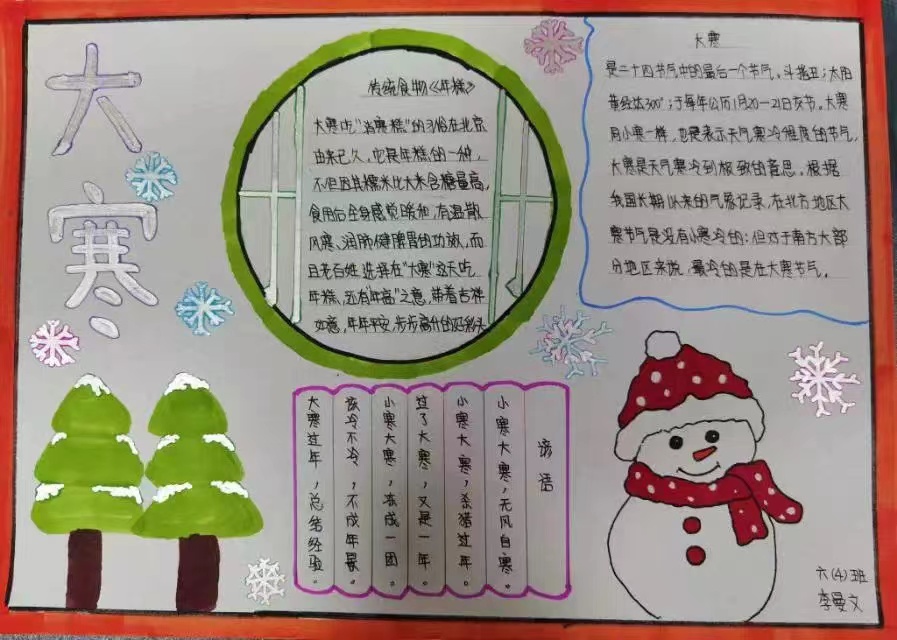 大寒
传统食物《年糕》
大寒吃“消寒糕”的习俗在北京
由来已久，也是年糕的一种，
不但因其糯米比大米含糖量高，
食用后全身感觉暖和，有温散
风寒、润肺健脾胃的功效，而
且老百姓选择在“大寒”这天吃
年糕，还有“年高”之意，带着吉祥
如意，年年平安，步步高升的好彩头
大寒
是二十四节气中的最后一个节气。斗指丑；太阳
黄经达300°；于每年公历1月20—21日交节。大寒
同小寒一样，也是表示天气寒冷程度的节气，
大寒是天气寒冷到极致的意思。根据
我国长期以来的气象记录，在北方地区大
寒节气是没有小寒冷的；但对于南方大部
分地区来说，最冷的是在大寒节气。
谚语
小寒大寒，无风自寒。
小寒大寒，杀猪过年。
过了大寒，又是一年。
小寒大寒，冻成一团。
该冷不冷，不成年景。
大寒过年，总结经验。
六(4)班
李曼文